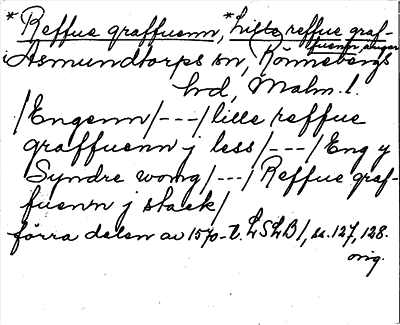 *Reffue graffuenn, *Lille reffue graf-
fuenn, ängar
i Asmundtorps sn, Rönnebergs
hd, Malm. l.
/Engenn/---/lille reffue
graffuenn j less/---/Eng y
Syndre wong/---/Reffue graf-
fuenn j stack/
förra delen av 1570-t. LSLB1, s. 127, 128.
orig.